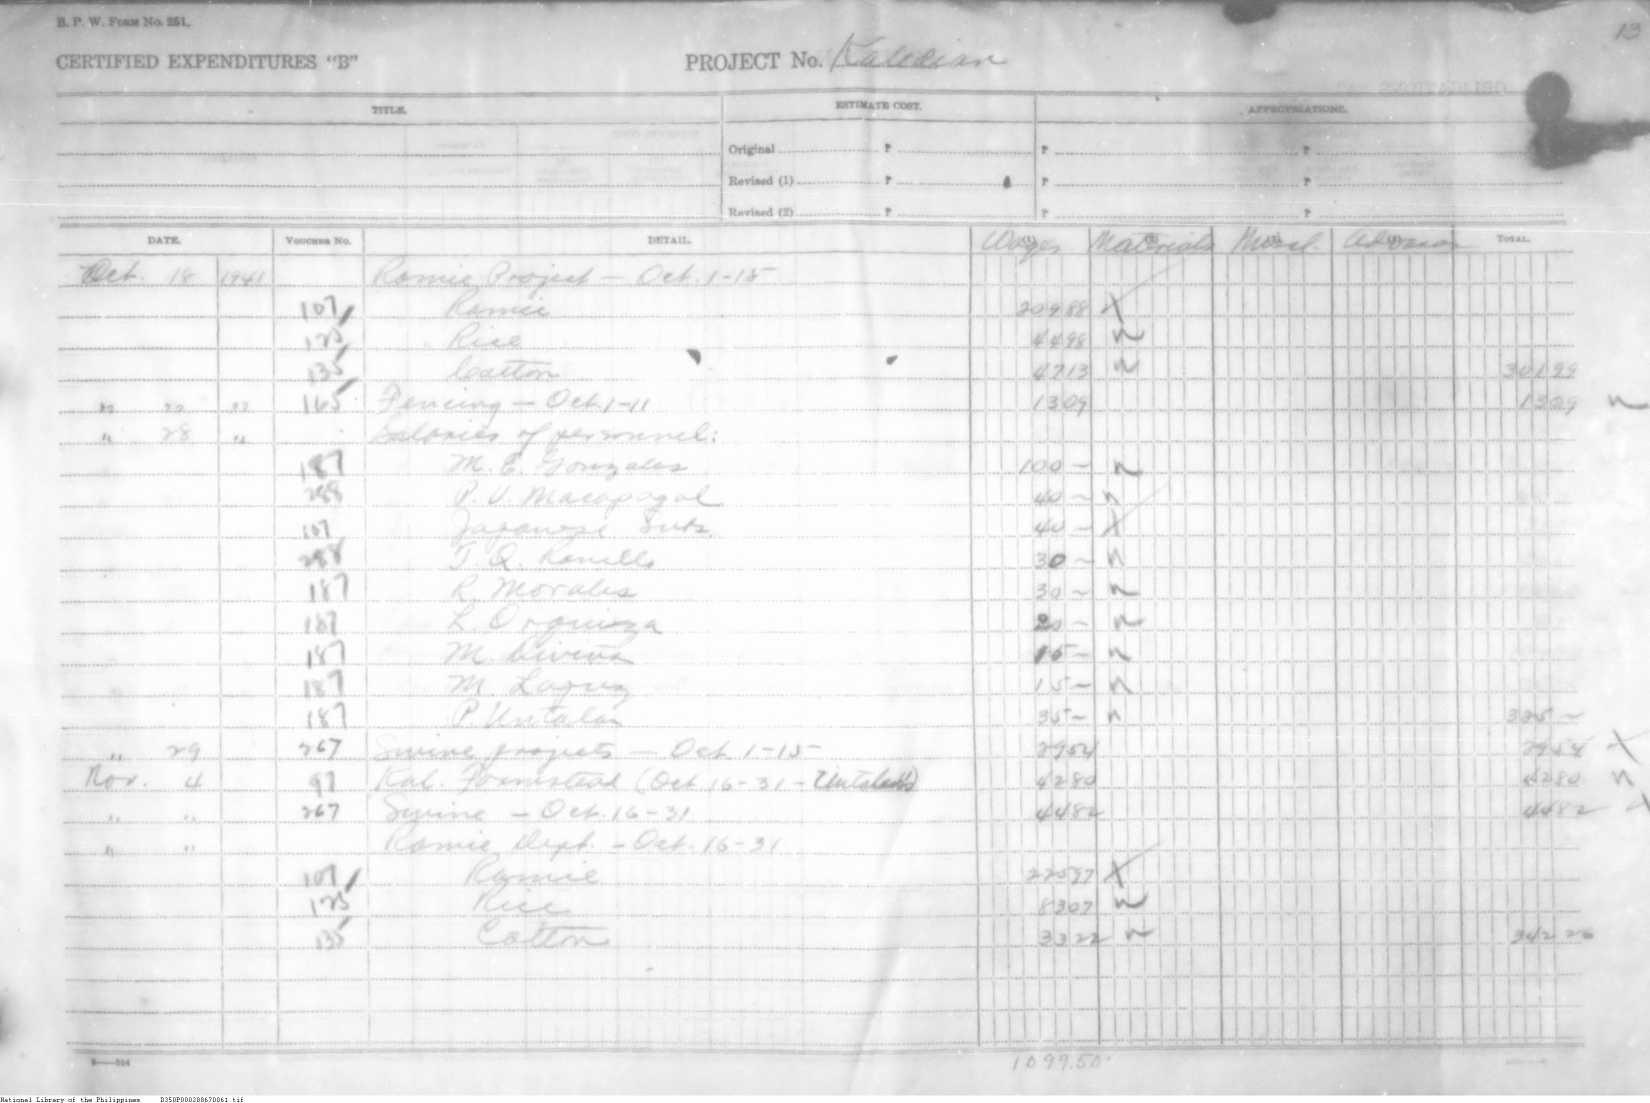 B. P. W. Form No. 251.
13
CERTIFIED EXPENDITURES "B"
PROJECT No.
TITLE. ESTIMATE COST. APPROPRIATIONS.
Original ₱ ₱ ₱
Revised (1) ₱ ₱ ₱
Revised (2) ₱ ₱ ₱
DATE. VOUCHER No. DETAIL. Wages Materials Misc'l. TOTAL.
Oct. 18 1941 Ramie Project — Oct. 1-15
107 Ramie 209 88
125 Rice 44 98
135 Cotton 47 13 301 99
" 20 " 165 Fencing — Oct. 1-11 13 09 13 09
" 28 " Salaries of personnel:
187 M. C. Gonzales 100 —
288 P. V. Macapagal 40 —
107 Japanese 40 —
288 T. Q. 30 —
187 R. Morales 30 —
187 L. 20 —
187 M. 15 —
187 M. 15 —
187 P. Untalan 35 — 325 —
" 29 267 Swine projects — Oct. 1-15 29 54 29 54
Nov. 4 97 Kal. Farmstead (Oct. 16-31 - Untalan) 42 80 42 80
" " 267 Swine — Oct. 16-31 44 82 44 82
" " Ramie Dept. — Oct. 16-31
107 Ramie 225 97
125 Rice 83 07
135 Cotton 33 22 342 26
1099.50
National Library of the Philippines D350P000288670061.tif